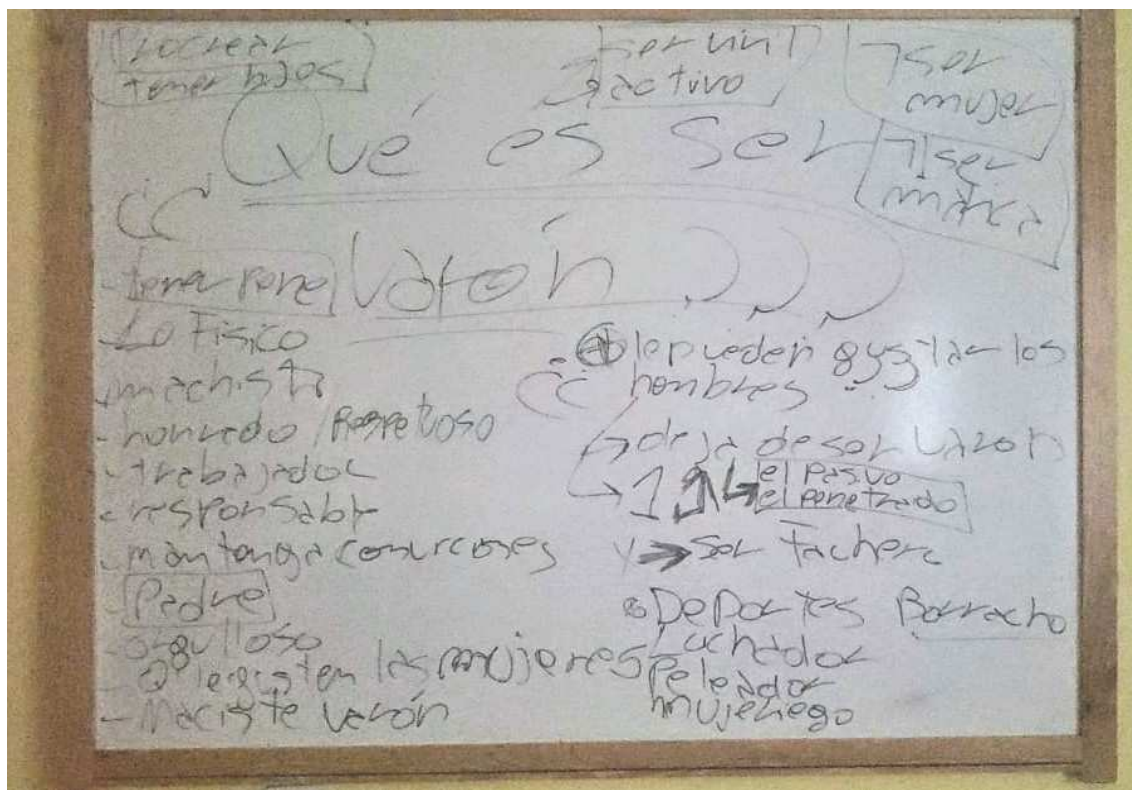 Procrear
tener hijos
Ser viril
activo
7 ser
mujer
7 ser
marica
Qué es ser
Varón
- tener pene
- Lo Físico
machista
- honrado / Respetuoso
- trabajador
- responsable
- mantenga conversiones
- Padre
- orgulloso
- Q' le gusten las mujeres
- Naciste varón
le pueden gustar los
hombres
deja de ser varon
el pasivo
el penetrado
Ser Fachero
Deportes Borracho
Luchador
Peleador
mujeriego